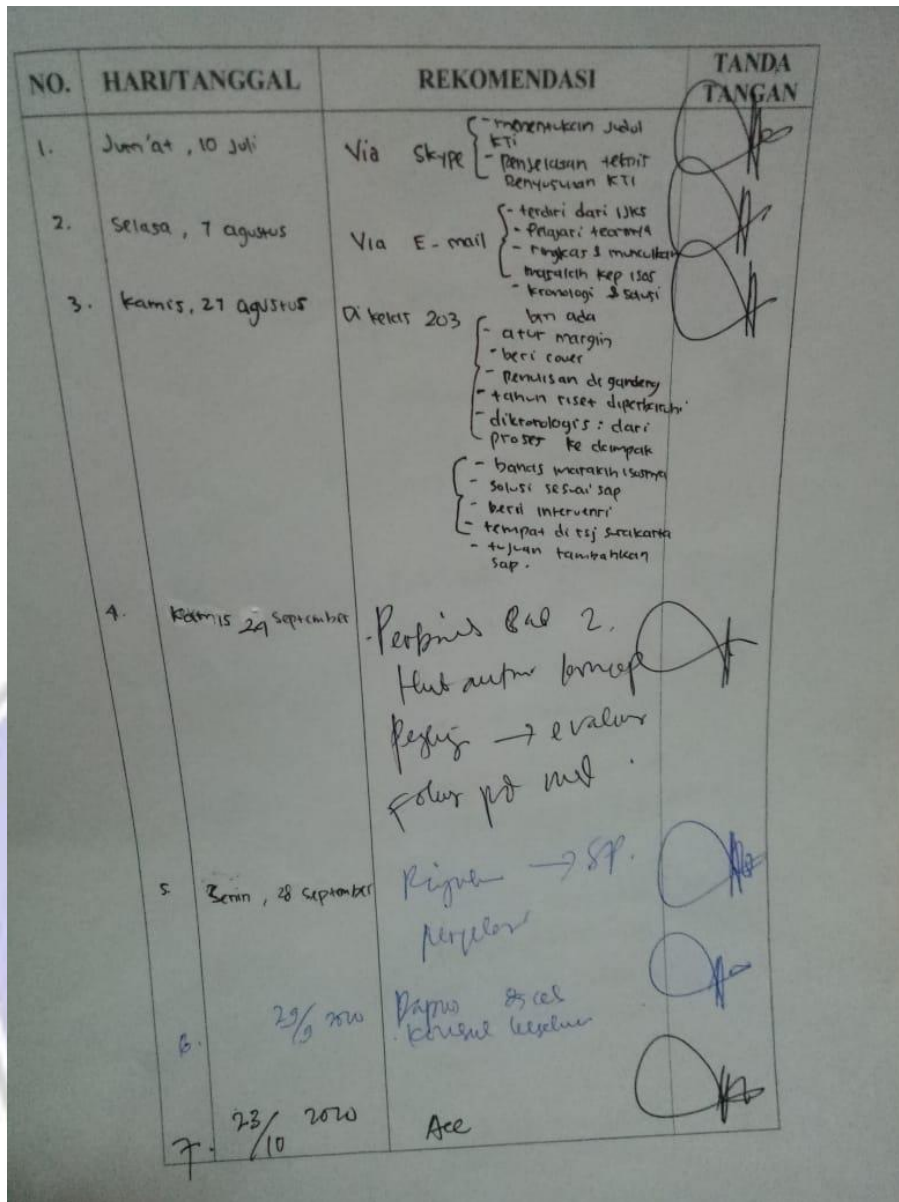 NO. HARI/TANGGAL REKOMENDASI TANDA TANGAN
1. Jum'at, 10 Juli Via Skype
- menentukan judul
KTI
- penjelasan teknit
penyusunan KTI
2. Selasa, 7 agustus Via E-mail
- terdiri dari IJKS
- Pelajari teorinya
- ringkas & munculkan
masalah kep isos
- kronologi & solusi
3. Kamis, 27 agustus Di kelas 203
bm ada
- atur margin
- beri cover
- penulisan di gandeng
- tahun riset diperbaiki
- dikronologis : dari
proses ke dampak
- bahas masalah isosnya
- solusi sesuai sap
- beri intervensi
- tempat di rsj surakarta
- tujuan tambahkan
sap.
4. Kamis 24 September
- Perbaiki Bab 2.
Hub antar konsep
→ evaluasi
Fokus pd
5. Senin, 28 September
→ SP.
6. 29/9 2020 Dapus
konsul
7. 23/10 2020 Acc